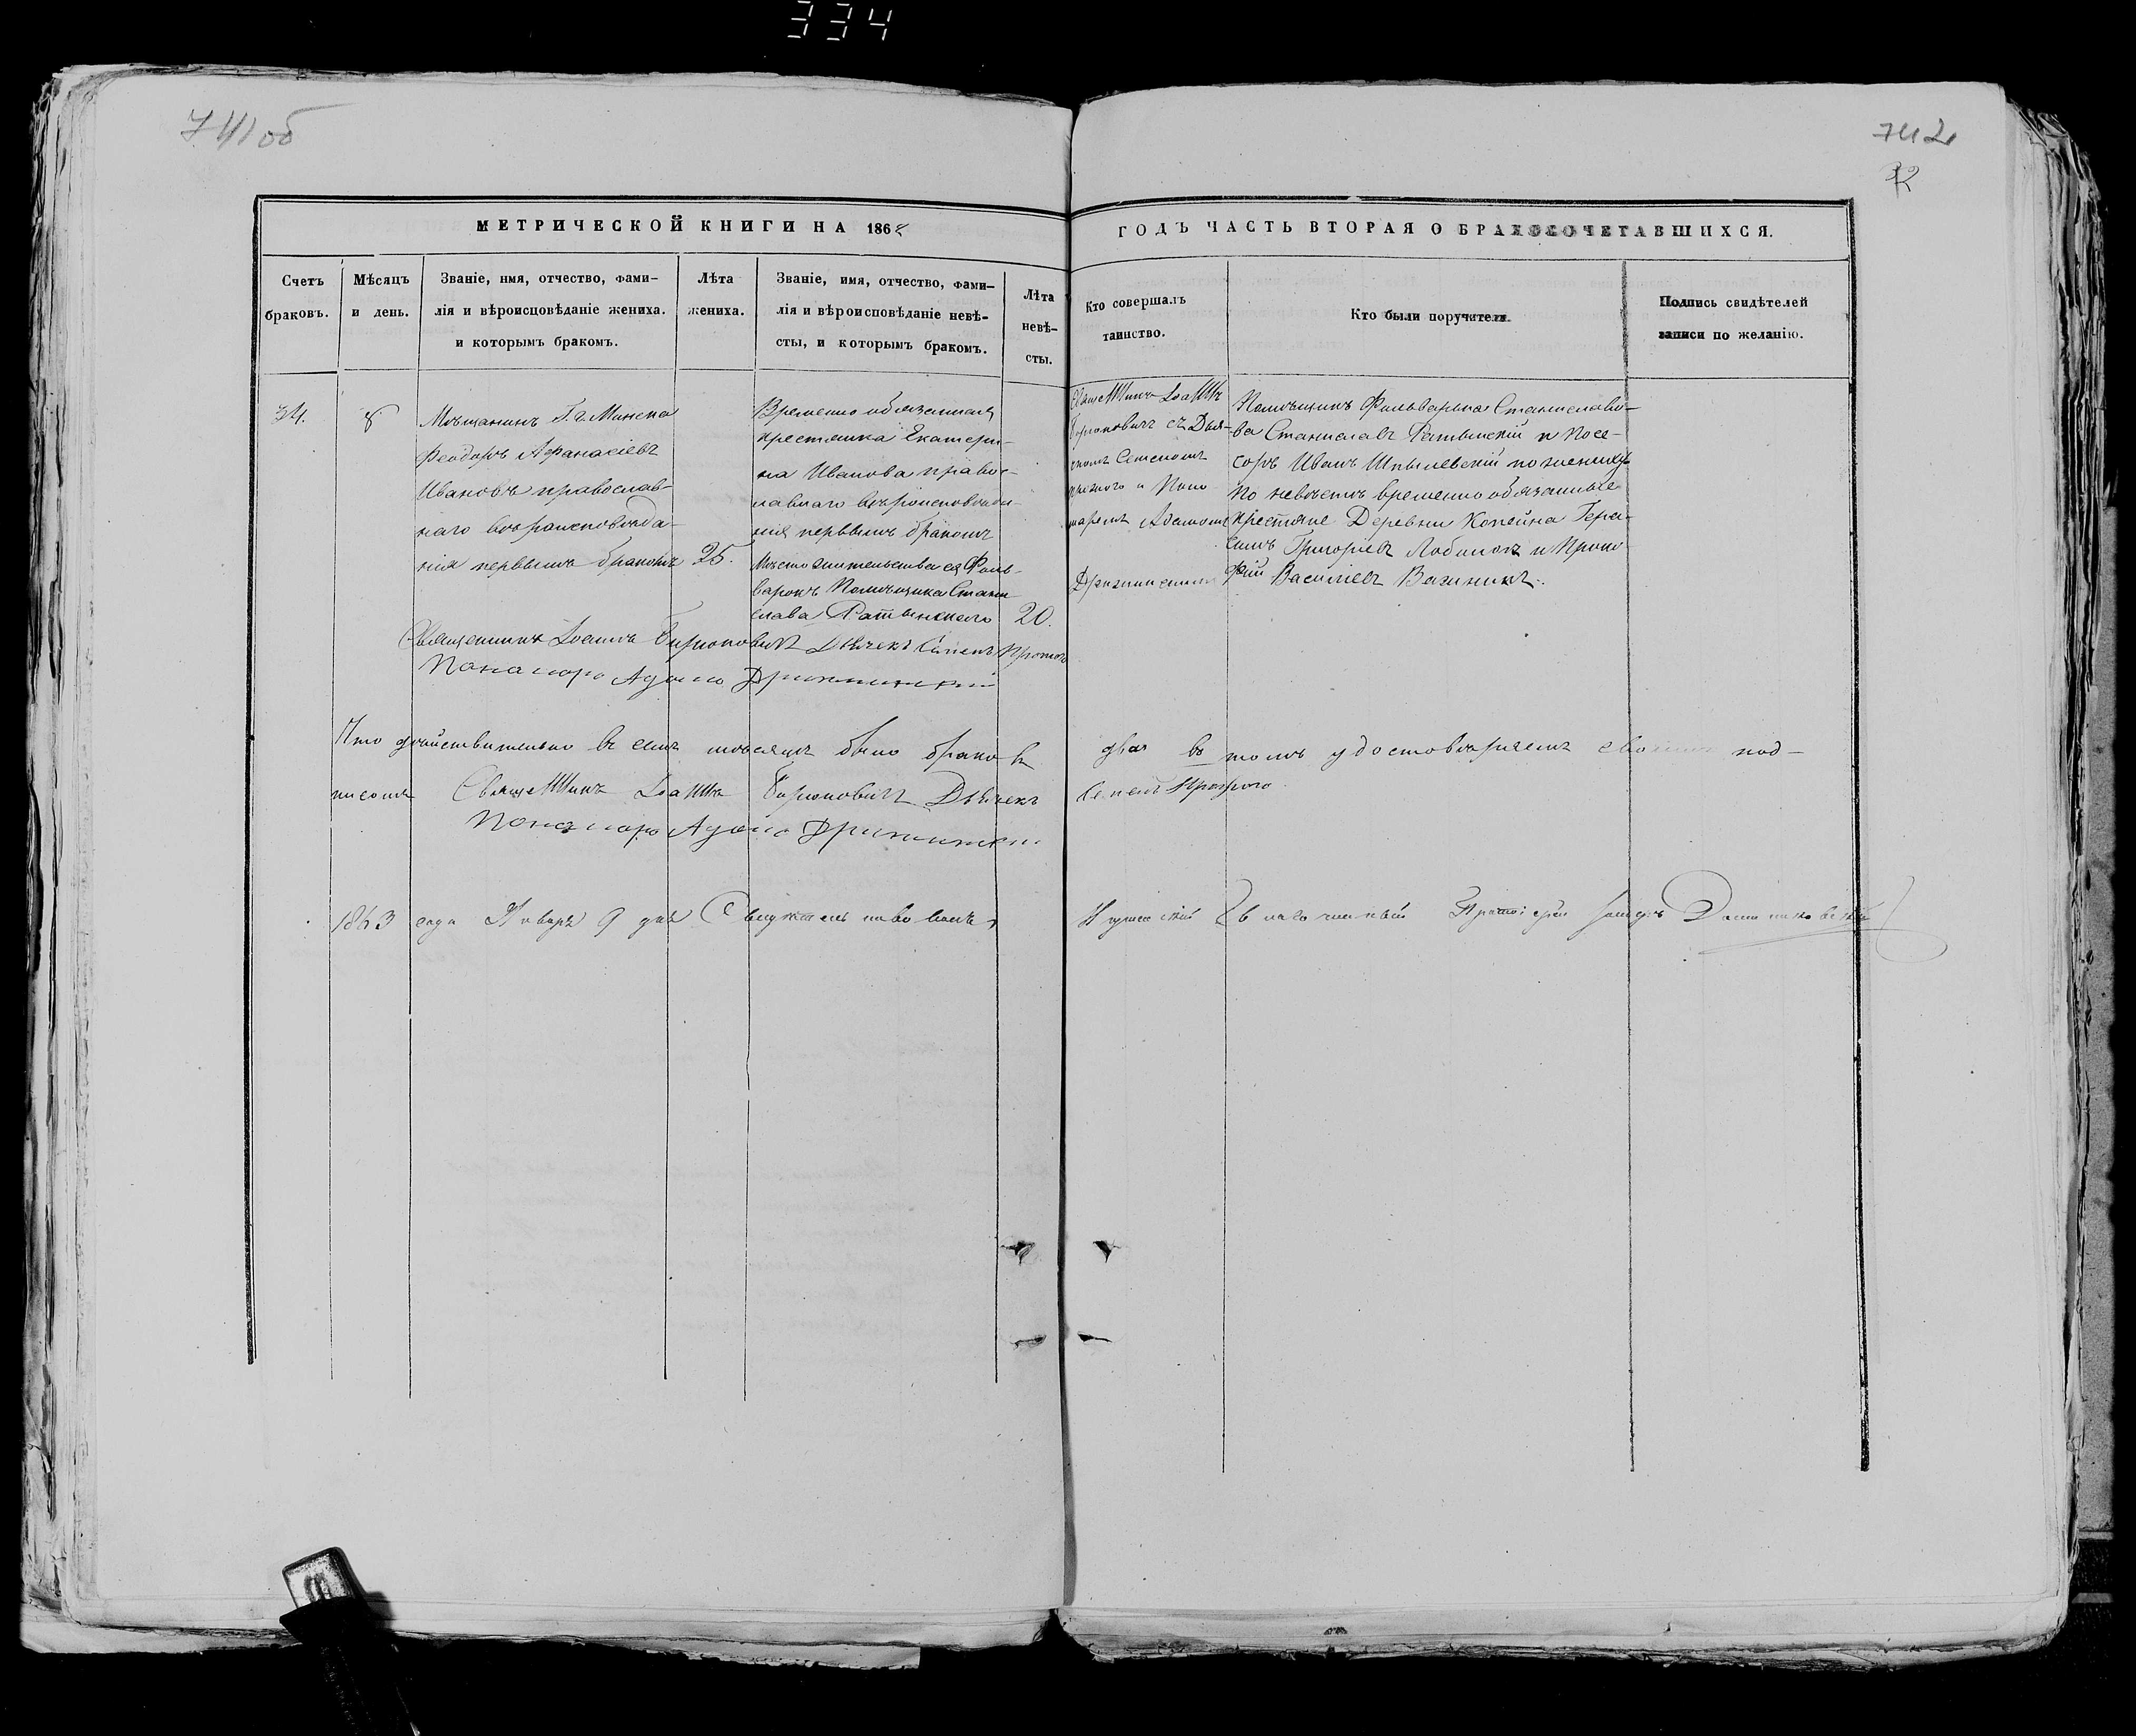 334
741об
742
32
МЕТРИЧЕСКОЙ КНИГИ НА 186
ГОДЪ ЧАСТЬ ВТОРАЯ О БРАКОСОЧЕТАВШИХСЯ.
Счетъ браковъ.
Мѣсяцъ и день.
Званіе, имя, отчество, фами-
лія и вѣроисповѣданіе жениха.
и которымъ бракомъ.
Лѣта жениха.
Званіе, имя, отчество, фами-
лія и вѣроисповѣданіе невѣ-
сты, и которымъ бракомъ.
Лѣта
невѣ-
сты.
Кто совершалъ
таинство.
Кто были поручители.
Подпись свидѣтелей
записи по желанію.
34.
8
Мѣщанинъ Г. Минска
Феодоръ Афанасіевъ
Ивановъ православ-
наго вѣроисповѣда-
нія первымъ бракомъ
25.
Временно обязанная
крестянка Екатери-
на Иванова правос-
лавнаго вѣроисповѣда-
нія первымъ бракомъ
Мѣсто жительства ея Фоль-
варокъ Помѣщика Стани
слава Ратынскаго
20.
Священникъ Іоаннъ
съ Дья-
Семеномъ
и Поно
маремъ Адамомъ
Помѣщикъ Фольварка Станиславо-
ва Станиславъ Ратынскій и Посе-
соръ Иванъ Шпилевскій по женихѣ
По невѣстѣ временно обязанные
крестяне Деревни Копейна Гера-
симъ Григоріевъ и Проко
фій Василіевъ
Священникъ Іоаннъ Дьячекъ Семенъ
Пономарь Адамъ
Что дѣйствительно въ семъ мѣсяцѣ было браковъ два въ томъ удостовѣряемъ своимъ под-
писомъ Священникъ Іоаннъ Дьячекъ Семенъ
Пономарь Адамъ
1863 года Января 9 дня Благочинный Протоіерей